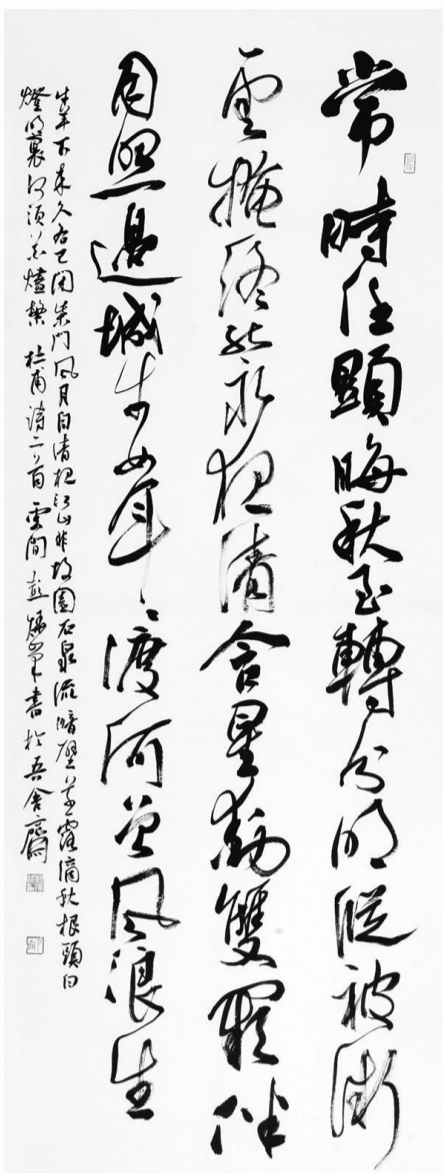 常時任顯晦秋至轉分明縱被微
雲掩終能永夜清含星動雙闕伴
月照邊城牛女年々渡何曾風浪生
牛羊下來久各已閉柴門風月自清夜江山非故園石泉流暗壁草露滴秋根頭白
燈明裏何須花燼繁 杜甫詩二首 雲間彭 書於吾舍齋